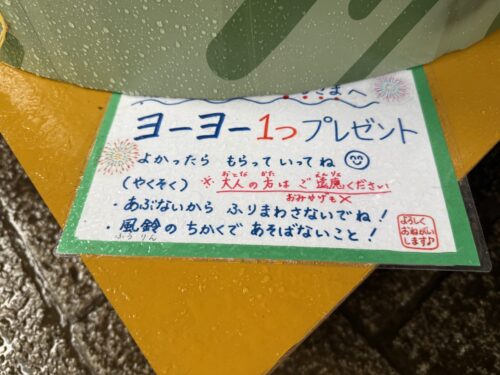 さまへ
ヨーヨー1つプレゼント
よかったら もらっていってね
(やくそく) ※大人の方はご遠慮ください
おとな かた えんりょ
おみやげも×
・あぶないから ふりまわさないでね!
・風鈴の ちかくで あそばないこと!
ふうりん
よろしく
おねがい
します♪